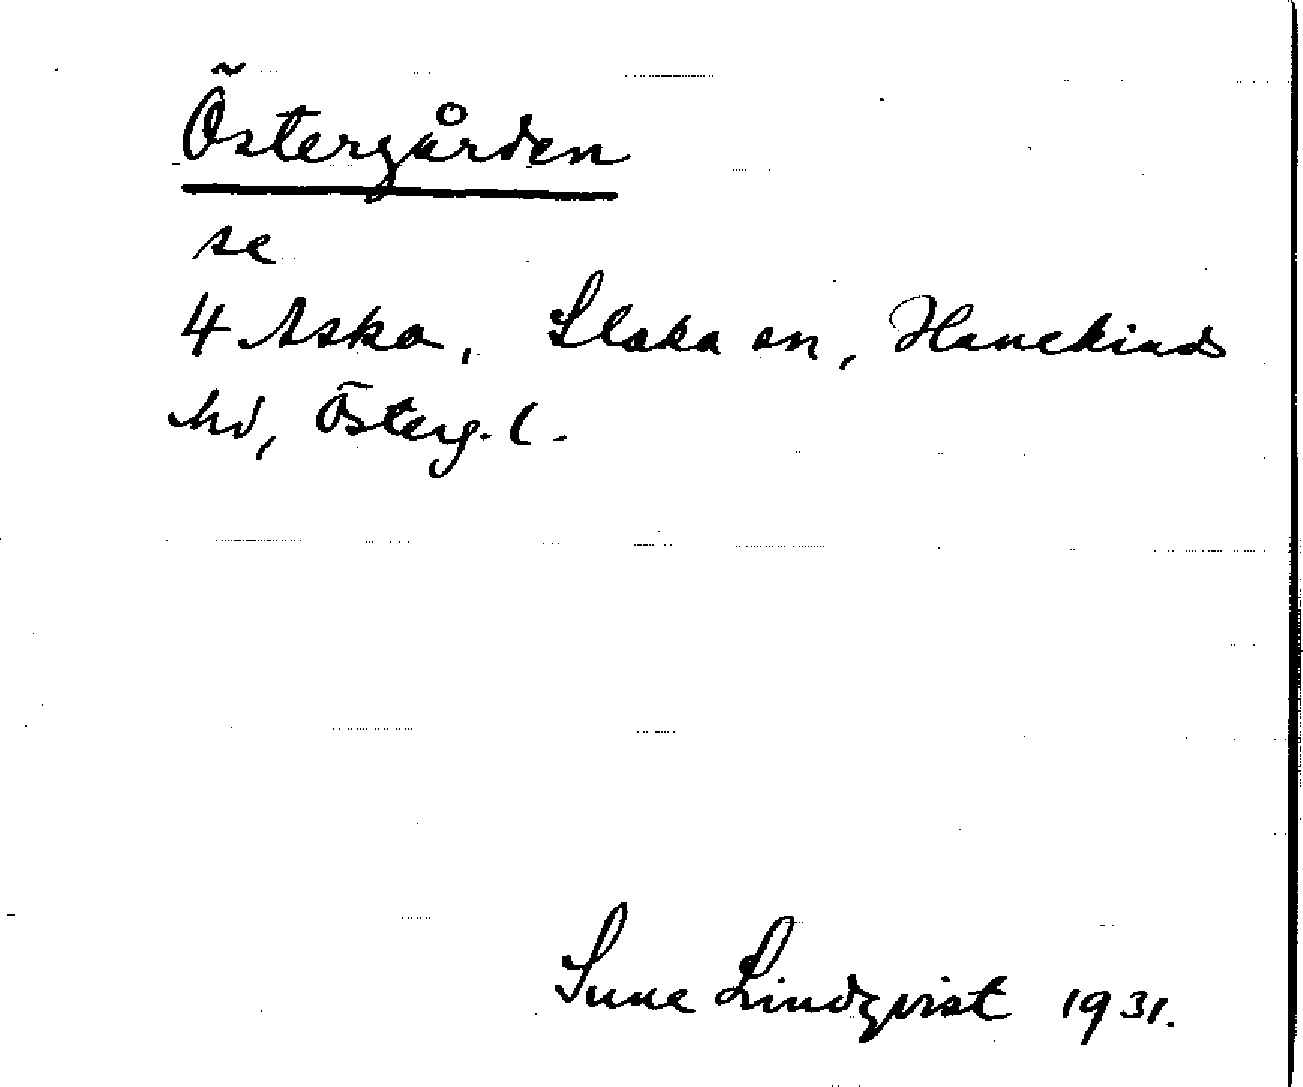 Östergården
se
4 Aska, Slaka sn, Hanekinds
hd, Österg. l.
Sune Lindqvist 1931.